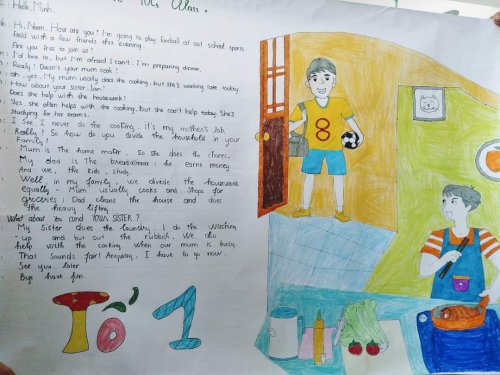 10s Class.
: Hello, Minh.
: Hi, Nam. How are you! I'm going to play football at out school sports
field with a few friends this evening.
Are you free to join us!
: I'd love to, but I'm afraid I can't. I'm preparing dinner.
: Really! Doesn't your mum cook!
: Oh, yes. My mum usually does the cooking, but she's working late today.
: How about your sister, Lan!
Does she help with the housework!
: Yes. she often helps with the cooking. But she can't help today. She's
studying for her exams.
: I See. I never do the cooking. it's my mother's Job.
Really? So how do you divide the household in your
Family?
Mum is the home mater, so she does the chores.
My dad is the breadwinner, he earns money
And we, the kids, study.
Well in my family, we divide the housework
equally. Mum usually cooks and shops for
groceries; Dad cleans the house and does
the heavy lifting
What about you and YOUR SISTER?
My Sister does the laundry. I do the washing
-up and but out the rubbish. We also
help with the cooking when our mum is busy.
That Sounds fair! Anyway, I have to go now.
See you later
Bye have fun.
8
Tổ 1